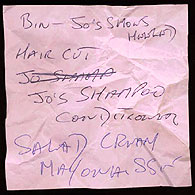 BIN - JO'S SHOWS
HAIR CUT
JO SHAMP
JO'S SHAMPOO
CONDITIONER
SALAD CREAM
MAYONAISSE